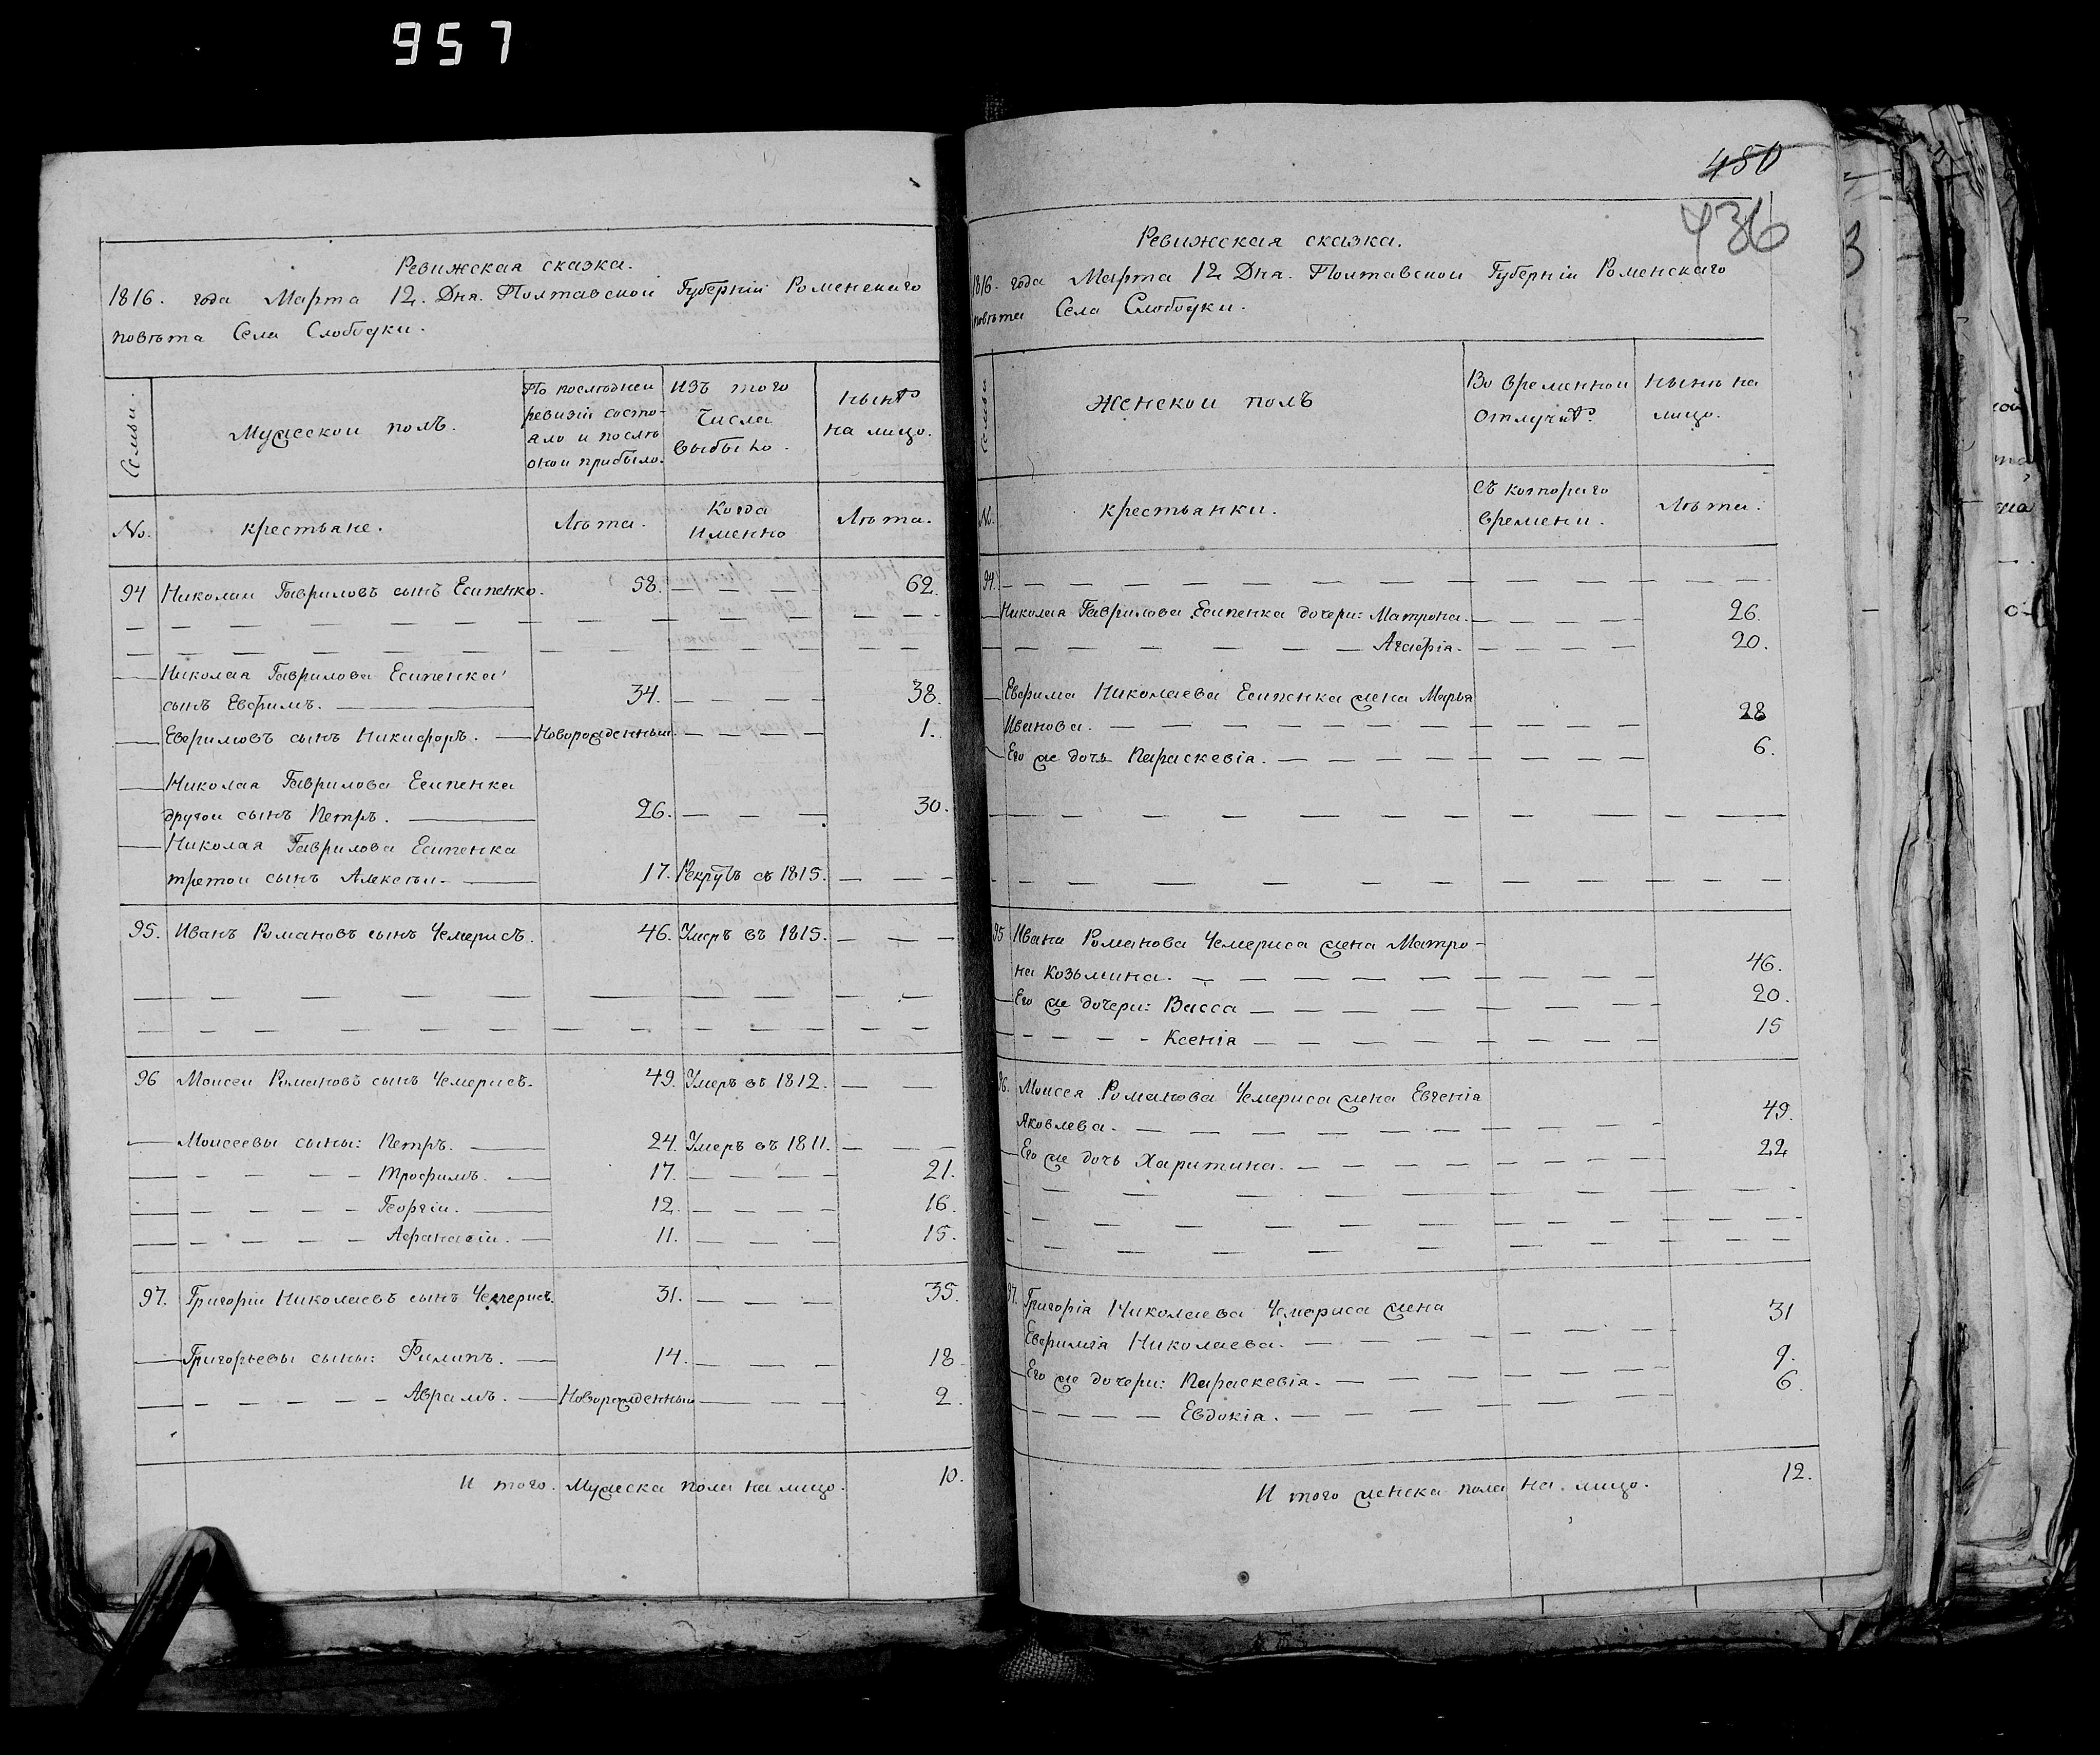 957
Ревижская сказка.
1816. года Марта 12. Дня. Полтавской Губернїи Роменскаго
повѣта Села Слободки.
Семьи.
Мужескои полъ.
По послѣднеи
ревизїи состо-
ало и послѣ
онои прибыло.
Изъ того
Числа
выбыло.
нынѣ
на лицо.
No.
крестьане.
Лѣта.
Когда
Именно
Лѣта.
94 Николаи Гавриловъ сынъ Есипенко. 58. 62.
Николая Гаврилова Есипенка
сынъ Евфимъ. 34. 38.
Евфимовъ сынъ Никифоръ. Новорожденныи 1.
Николая Гаврилова Есипенка
другои сынъ Петръ. 26. 30.
Николая Гаврилова Есипенка
третои сынъ Алексѣи. 17. Рекрутъ съ 1815.
95. Иванъ Романовъ сынъ Чемерисъ. 46. Умеръ въ 1815.
96 Моисеи Романовъ сынъ Чемерисъ. 49. Умеръ въ 1812.
Моисеевы сыны: Петръ. 24. Умеръ въ 1811.
Трофимъ. 17. 21.
Георгїи. 12. 16.
Афанасїи. 11. 15.
97. Григорїи Николаевъ сынъ Чемерисъ. 31. 35.
Григорьевы сыны: Филипъ. 14. 18
Аврамъ. Новорожденныи 2.
И того. Мужеска пола на лицо. 10.
450
436
Ревижская сказка.
1816. года Марта 12 Дня. Полтавскои Губернїи Роменскаго
повѣта Села Слободки.
Семьи
Женскои полъ
Во временнои
отлучкѣ.
нынѣ на
лицо.
№.
крестьанки.
съ котораго
времени.
Лѣта.
94.
Николая Гаврилова Есипенка дочери: Матрона. 26.
Агафїя. 20.
Евфима Николаева Есипенка жена Марья
Иванова. 28
Его же дочь Параскевїа. 6.
95 Ивана Романова Чемериса жена Матро-
на Козьмина. 46.
Его же дочери: Васса 20.
Ксенїа 15
96. Моисея Романова Чемериса жена Евгенїа
Яковлева. 49.
Его же дочь Харитина. 22
97. Григорїа Николаева Чемериса жена
Евфимїа Николаева. 31
Его же дочери: Параскевїа. 9.
Евдокїа. 6.
И того женска пола на. лицо. 12.